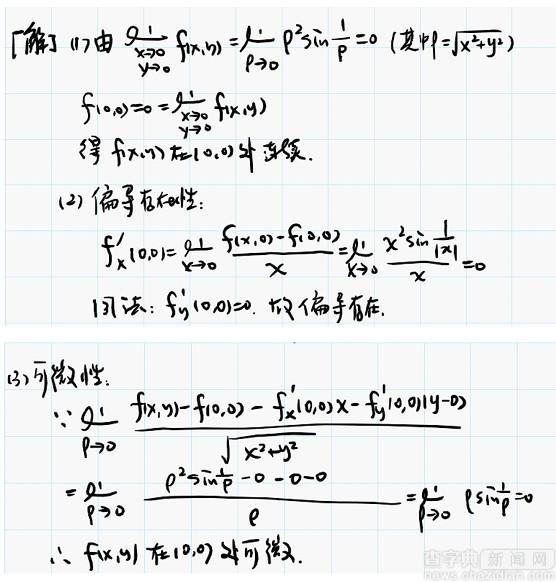 [解] (1) 由 lim x→0 y→0 f(x,y) = lim ρ→0 ρ²sin 1/ρ = 0 (其中ρ=√(x²+y²))
f(0,0)=0=lim x→0 y→0 f(x,y)
得 f(x,y) 在(0,0)处连续.
(2) 偏导存在性:
f'x(0,0)= lim x→0 (f(x,0)-f(0,0))/x = lim x→0 (x² sin 1/|x|)/x =0
同法: f'y(0,0)=0. 故偏导存在.
(3) 可微性:
∵ lim ρ→0 (f(x,y)-f(0,0)-f'x(0,0)x-f'y(0,0)(y-0))/√(x²+y²)
= lim ρ→0 (ρ²sin 1/ρ -0-0-0)/ρ = lim ρ→0 ρ sin 1/ρ =0
∴ f(x,y) 在(0,0)处可微.
查字典新闻网
news.chazidian.com